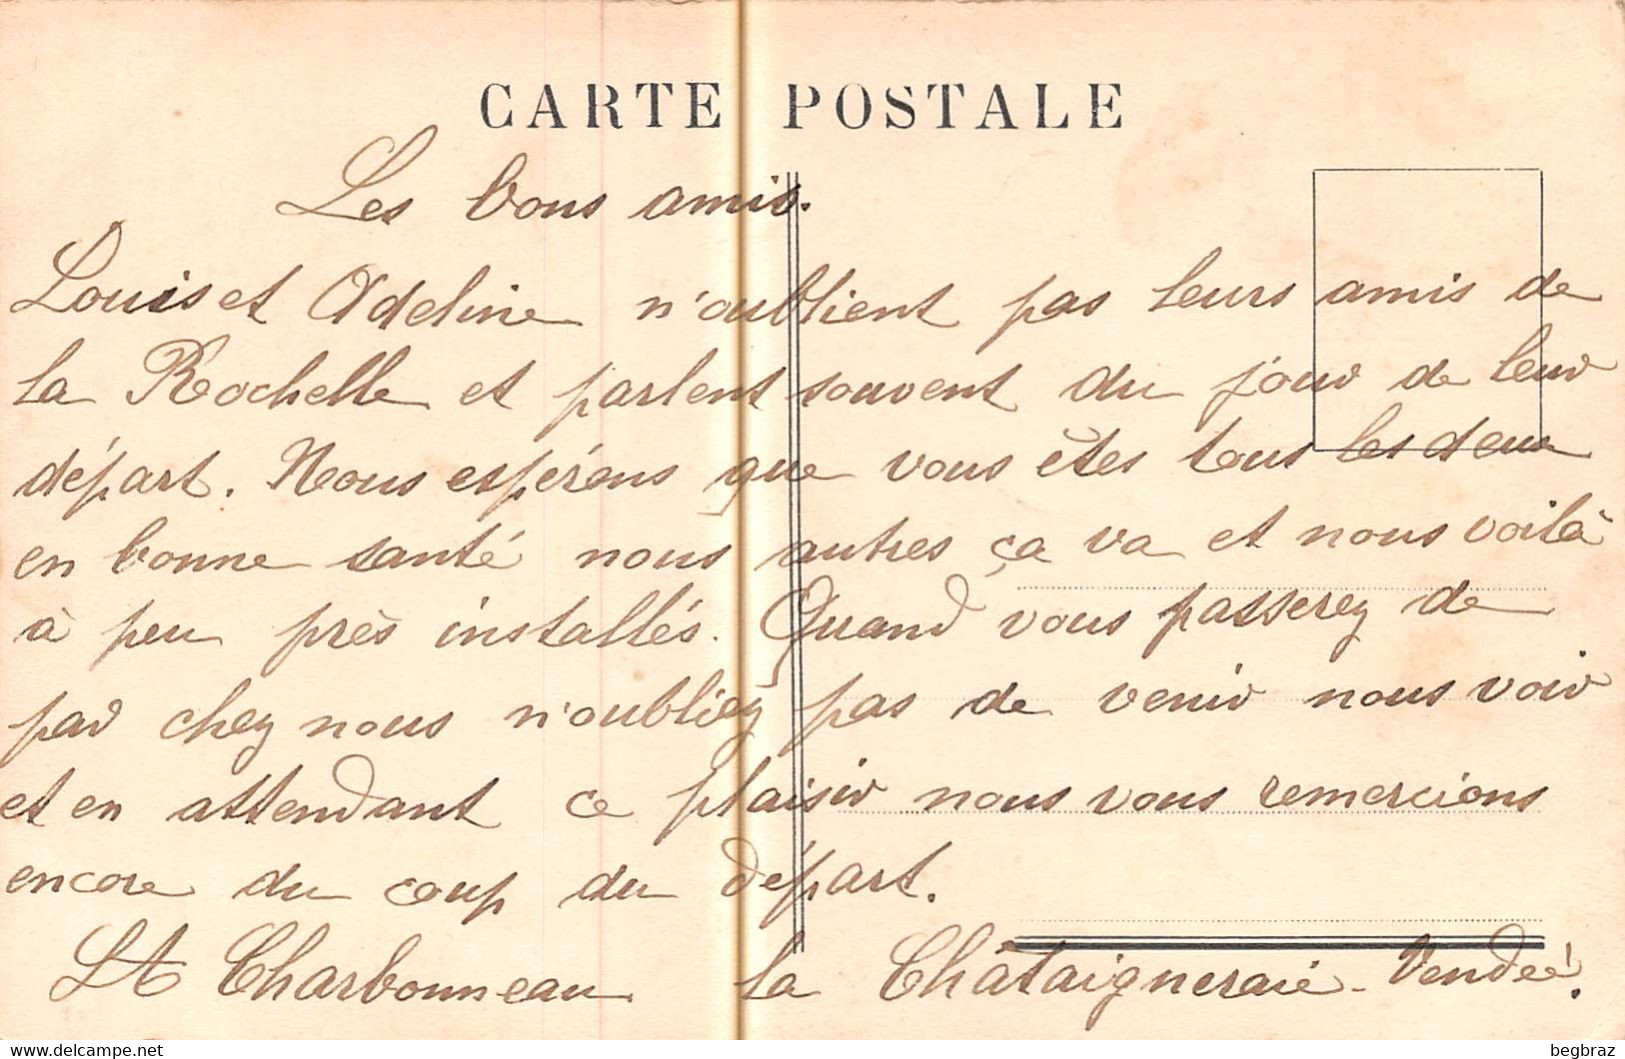 CARTE POSTALE
Les bons amis.
Louis et Adeline n'oublient pas leurs amis de
la Rochelle et parlent souvent du jour de leur
départ. Nous espérons que vous êtes tous les deux
en bonne santé nous autres ça va et nous voilà
à peu près installés. Quand vous passerez de
par chez nous n'oubliez pas de venir nous voir
et en attendant ce plaisir nous vous remercions
encore du coup du départ.
LA Charbonneau la Châtaigneraie - Vendée.
begbraz